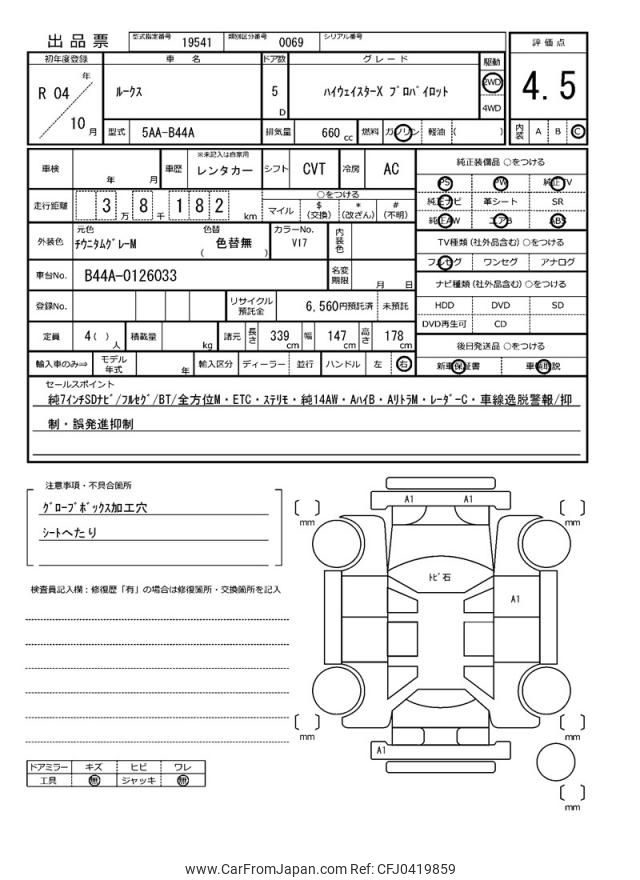 出品票 型式指定番号 19541 類別区分番号 0069 シリアル番号
初年度登録 車名 ドア数 グレード 駆動 評価点
R 04 年 10 月 ルークス 5 D ハイウェイスターX プロパイロット 2WD 4WD 4.5
型式 5AA-B44A 排気量 660 cc 燃料 ガソリン 軽油 ( ) 内装 A B C
車検 年 月 車歴 ※未記入は自家用 レンタカー シフト CVT 冷房 AC
純正装備品 ○をつける
PS PW 純正TV
純正ナビ 革シート SR
純正AW エアB ABS
走行距離 3 万 8 千 1 8 2 km
○をつける
マイル $ (交換) * (改ざん) # (不明)
外装色 元色 チタニウムグレーM 色替 ( 色替無 ) カラーNo. V17 内装色
TV種類 (社外品含む) ○をつける
フルセグ ワンセグ アナログ
車台No. B44A-0126033 名変期限 月 日
ナビ種類 (社外品含む) ○をつける
HDD DVD SD
DVD再生可 CD
登録No. リサイクル預託金 6,560円預託済 未預託
定員 4 ( ) 人 積載量 kg 諸元 長さ 339 cm 幅 147 cm 高さ 178 cm
後日発送品 ○をつける
新車保証書 車輌取説
輸入車のみ⇒ モデル年式 年 輸入区分 ディーラー 並行 ハンドル 左 右
セールスポイント
純7インチSDナビ/フルセグ/BT/全方位M・ETC・ステリモ・純14AW・AハイB・AリトラM・レーダーC・車線逸脱警報/抑
制・誤発進抑制
注意事項・不具合箇所
グローブボックス加工穴
シートへたり
検査員記入欄：修復歴「有」の場合は修復箇所・交換箇所を記入
ドアミラー キズ ヒビ ワレ
工具 無 ジャッキ 無
A1 A1
mm mm
トビ石
A1
mm mm
A1
mm
www.CarFromJapan.com Ref: CFJ0419859